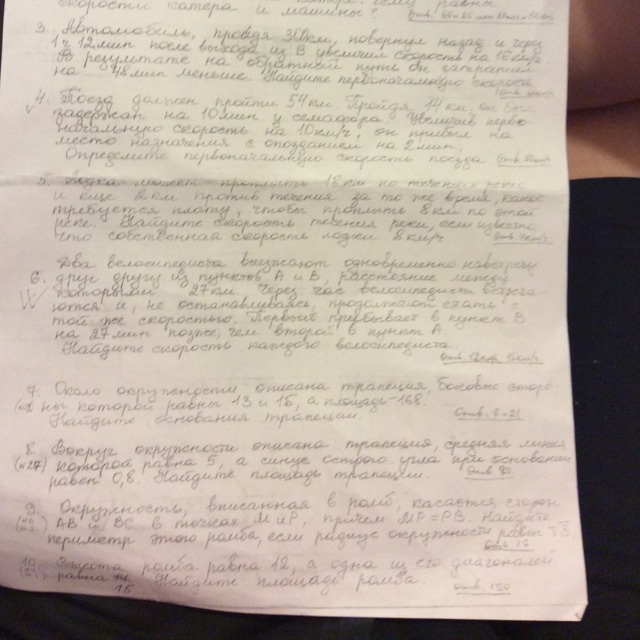 скорости катера и машины?
3. Автомобиль, пройдя 300км, повернул назад и через
1ч 12мин после выхода из В увеличил скорость на 16км/ч.
В результате на обратный путь он затратил
на 48мин меньше. Найдите первоначальную скорость
4. Поезд должен пройти 54км. Пройдя 14км, он был
задержан на 10мин у семафора. Увеличив перво-
начальную скорость на 10км/ч, он прибыл на
место назначения с опозданием на 2мин.
Определите первоначальную скорость поезда Отв.
5. Лодка может проплыть 18км по течению реки
и еще 2км против течения за то же время, какое
требуется плоту, чтобы проплыть 8км по этой
реке. Найдите скорость течения реки, если известно,
что собственная скорость лодки 8км/ч Отв.
6. Два велосипедиста выезжают одновременно навстречу
друг другу из пунктов А и В, расстояние между
которыми 27км. Через час велосипедисты встреча-
ются и, не останавливаясь, продолжают ехать с
той же скоростью. Первый прибывает в пункт В
на 27мин позже, чем второй в пункт А.
Найдите скорость каждого велосипедиста.
Отв.
7. Около окружности описана трапеция, боковые сторо-
ны которой равны 13 и 15, а площадь-168.
Найдите основания трапеции. Отв. 7 и 21
8. Вокруг окружности описана трапеция, средняя линия
(н27) которой равна 5, а синус острого угла при основании
равен 0,8. Найдите площадь трапеции. Отв 20.
9. Окружность, вписанная в ромб, касается сторон
АВ и ВС в точках М и Р, причем МР=РВ. Найдите
периметр этого ромба, если радиус окружности равен √3.
Отв 16
10. Высота ромба равна 12, а одна из его диагоналей
равна 15 Найдите площадь ромба. Отв. 150